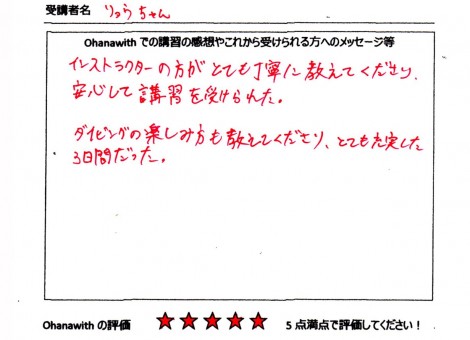 受講者名 りょうちゃん
Ohanawith での講習の感想やこれから受けられる方へのメッセージ等
インストラクターの方がとても丁寧に教えてくださり、
安心して講習を受けられた。
ダイビングの楽しみ方も教えてくださり、とても充実した
3日間だった。
Ohanawith の評価 ★★★★★ 5 点満点で評価してください!